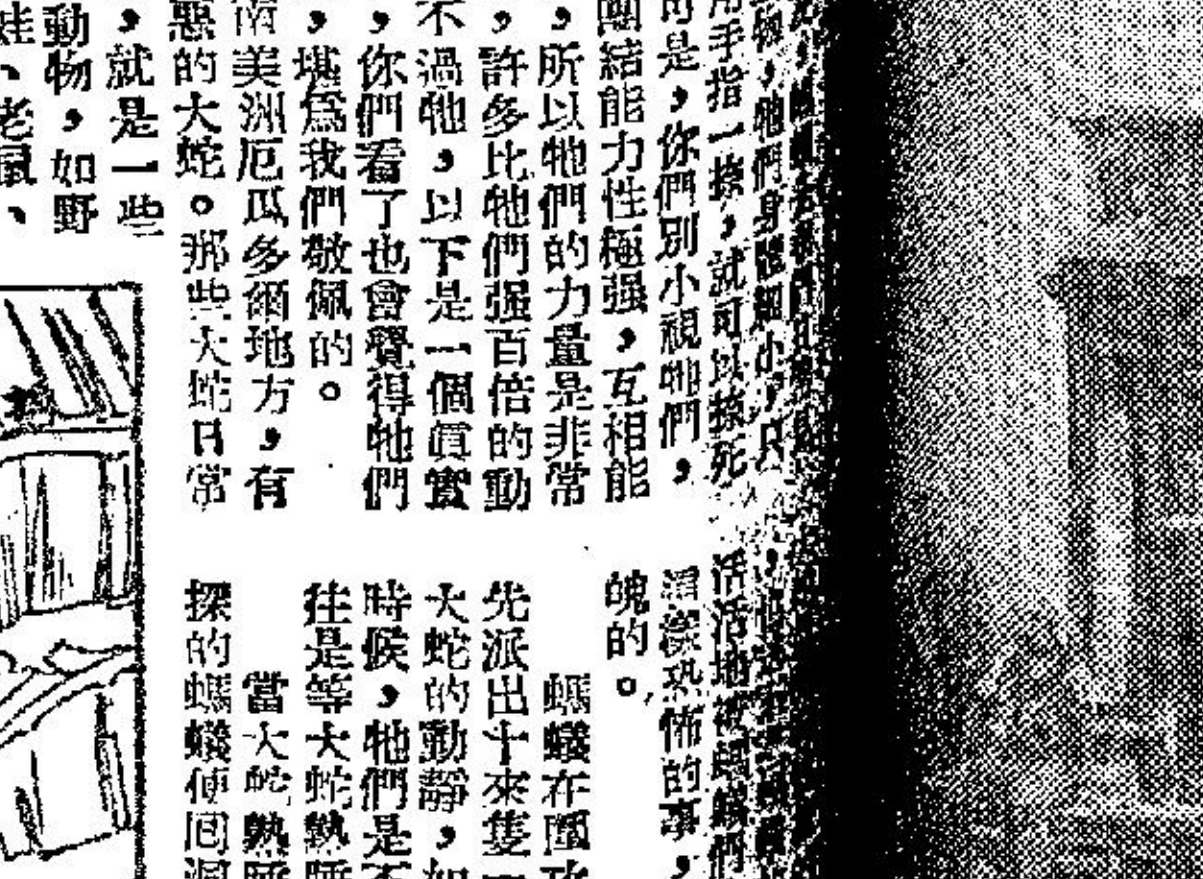 們身體細小，只
用手指一捺，就可以捺死
可是，你們別小視牠們，
團結能力性極强，互相能
，所以牠們的力量是非常
，許多比牠們强百倍的動
不過牠，以下是一個眞實
，你們看了也會覺得牠們
，堪爲我們敬佩的。
南美洲厄瓜多爾地方，有
惡的大蛇。那些大蛇日常
，就是一些
動物，如野
蛙、老鼠、
活活地被螞蟻們
恐怖的事，
魄的。
螞蟻在圍攻
先派出十來隻
大蛇的動靜，如
時候，牠們是不
往是等大蛇熟睡
當大蛇熟睡
探的螞蟻便回洞